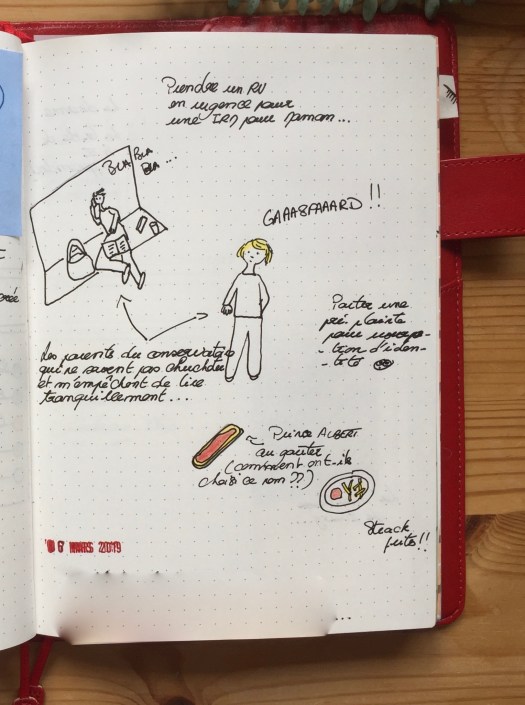 Prendre un RV
en urgence pour
une IRM pour Maman...
BLA BLA
BLA ...
GAAASPAAARD !!
Porter une
pré-plainte
pour usurpa-
-tion d'iden-
-tité
Les parents du conservatoire
qui ne savent pas chuchoter
et m'empêchent de lire
tranquillement...
Prince ALBERT
au goûter
(comment ont-ils
choisi ce nom ??)
Steack
frites !!
06 MARS 2019
...